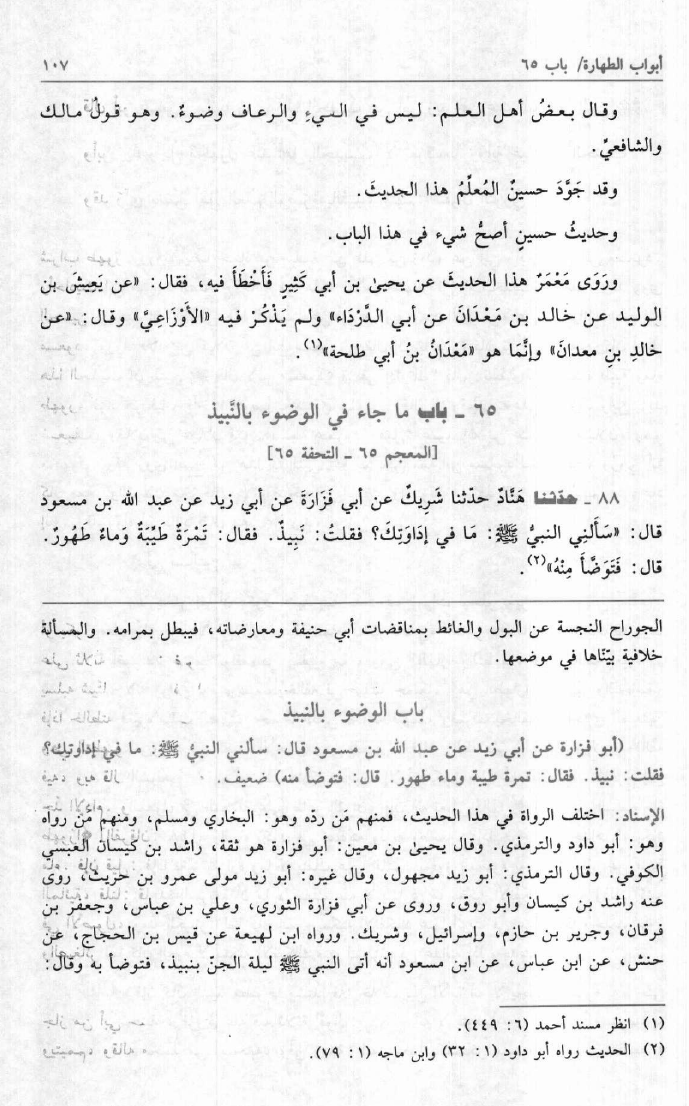 أبواب الطهارة/ باب ٦٥
١٠٧
وقال بعضُ أهل العلم: ليس في القيءِ والرعاف وضوءٌ. وهو قولُ مالك
والشافعيِّ.
وقد جَوَّدَ حسينٌ المُعلِّمُ هذا الحديثَ.
وحديثُ حسينٍ أصحُّ شيء في هذا الباب.
ورَوَى مَعْمَرٌ هذا الحديثَ عن يحيىٰ بن أبي كَثِيرٍ فَأَخْطَأَ فيه، فقال: «عن يَعِيشَ بن
الوليد عن خالد بن مَعْدَانَ عن أبي الدَّرْدَاء» ولم يَذْكُرْ فيه «الأَوْزَاعِيَّ» وقال: «عن
خالدِ بنِ معدانَ» وإنَّمَا هو «مَعْدَانُ بنُ أبي طلحة»(١).
٦٥ ـ باب ما جاء في الوضوء بالنَّبيذ
[المعجم ٦٥ ـ التحفة ٦٥]
٨٨ ـ حدّثنا هَنَّادٌ حدّثنا شَرِيكٌ عن أبي فَزَارَةَ عن أبي زيد عن عبد الله بن مسعود
قال: «سَأَلنِي النبيُّ ﷺ: مَا في إدَاوَتِكَ؟ فقلتُ: نَبِيذٌ. فقال: تَمْرَةٌ طَيِّبَةٌ وَماءٌ طَهُورٌ.
قال: فَتَوَضَّأَ مِنْهُ»(٢).
الجوراح النجسة عن البول والغائط بمناقضات أبي حنيفة ومعارضاته، فيبطل بمرامه. والمسألة
خلافية بيّنّاها في موضعها.
باب الوضوء بالنبيذ
(أبو فزارة عن أبي زيد عن عبد الله بن مسعود قال: سألني النبيُّ ﷺ: ما في إداوتِك؟
فقلت: نبيذ. فقال: تمرة طيبة وماء طهور. قال: فتوضأ منه) ضعيف.
الإسناد: اختلف الرواة في هذا الحديث، فمنهم مَن ردّه وهو: البخاري ومسلم، ومنهم مَن رواه
وهو: أبو داود والترمذي. وقال يحيىٰ بن معين: أبو فزارة هو ثقة، راشد بن كيسان العبسي
الكوفي. وقال الترمذي: أبو زيد مجهول، وقال غيره: أبو زيد مولى عمرو بن حريث، روىٰ
عنه راشد بن كيسان وأبو روق، وروى عن أبي فزارة الثوري، وعلي بن عباس، وجعفر بن
فرقان، وجرير بن حازم، وإسرائيل، وشريك. ورواه ابن لهيعة عن قيس بن الحجاج، عن
حنش، عن ابن عباس، عن ابن مسعود أنه أتى النبي ﷺ ليلة الجنّ بنبيذ، فتوضأ به وقال:
(١) انظر مسند أحمد (٦: ٤٤٩).
(٢) الحديث رواه أبو داود (١: ٣٢) وابن ماجه (١: ٧٩).